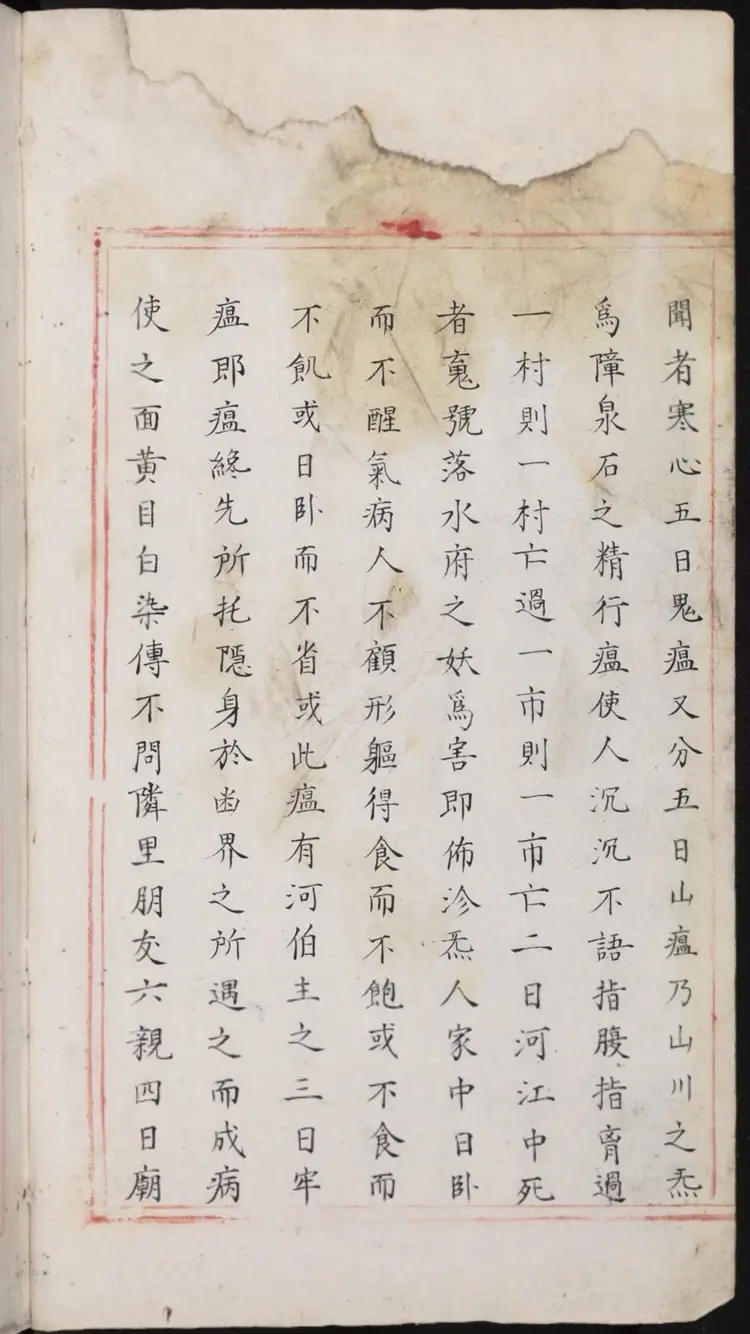 聞者寒心五曰鬼瘟又分五曰山瘟乃山川之炁
爲障泉石之精行瘟使人沉沉不語指腹指胷過
一村則一村亡過一市則一市亡二曰河江中死
者䰟號落水府之妖爲害即佈沴炁人家中日卧
而不醒氣病人不顧形軀得食而不飽或不食而
不飢或日卧而不省或此瘟有河伯主之三曰牢
瘟即瘟終先所托隱身於幽界之所遇之而成病
使之面黃目白染傳不問隣里朋友六親四曰廟